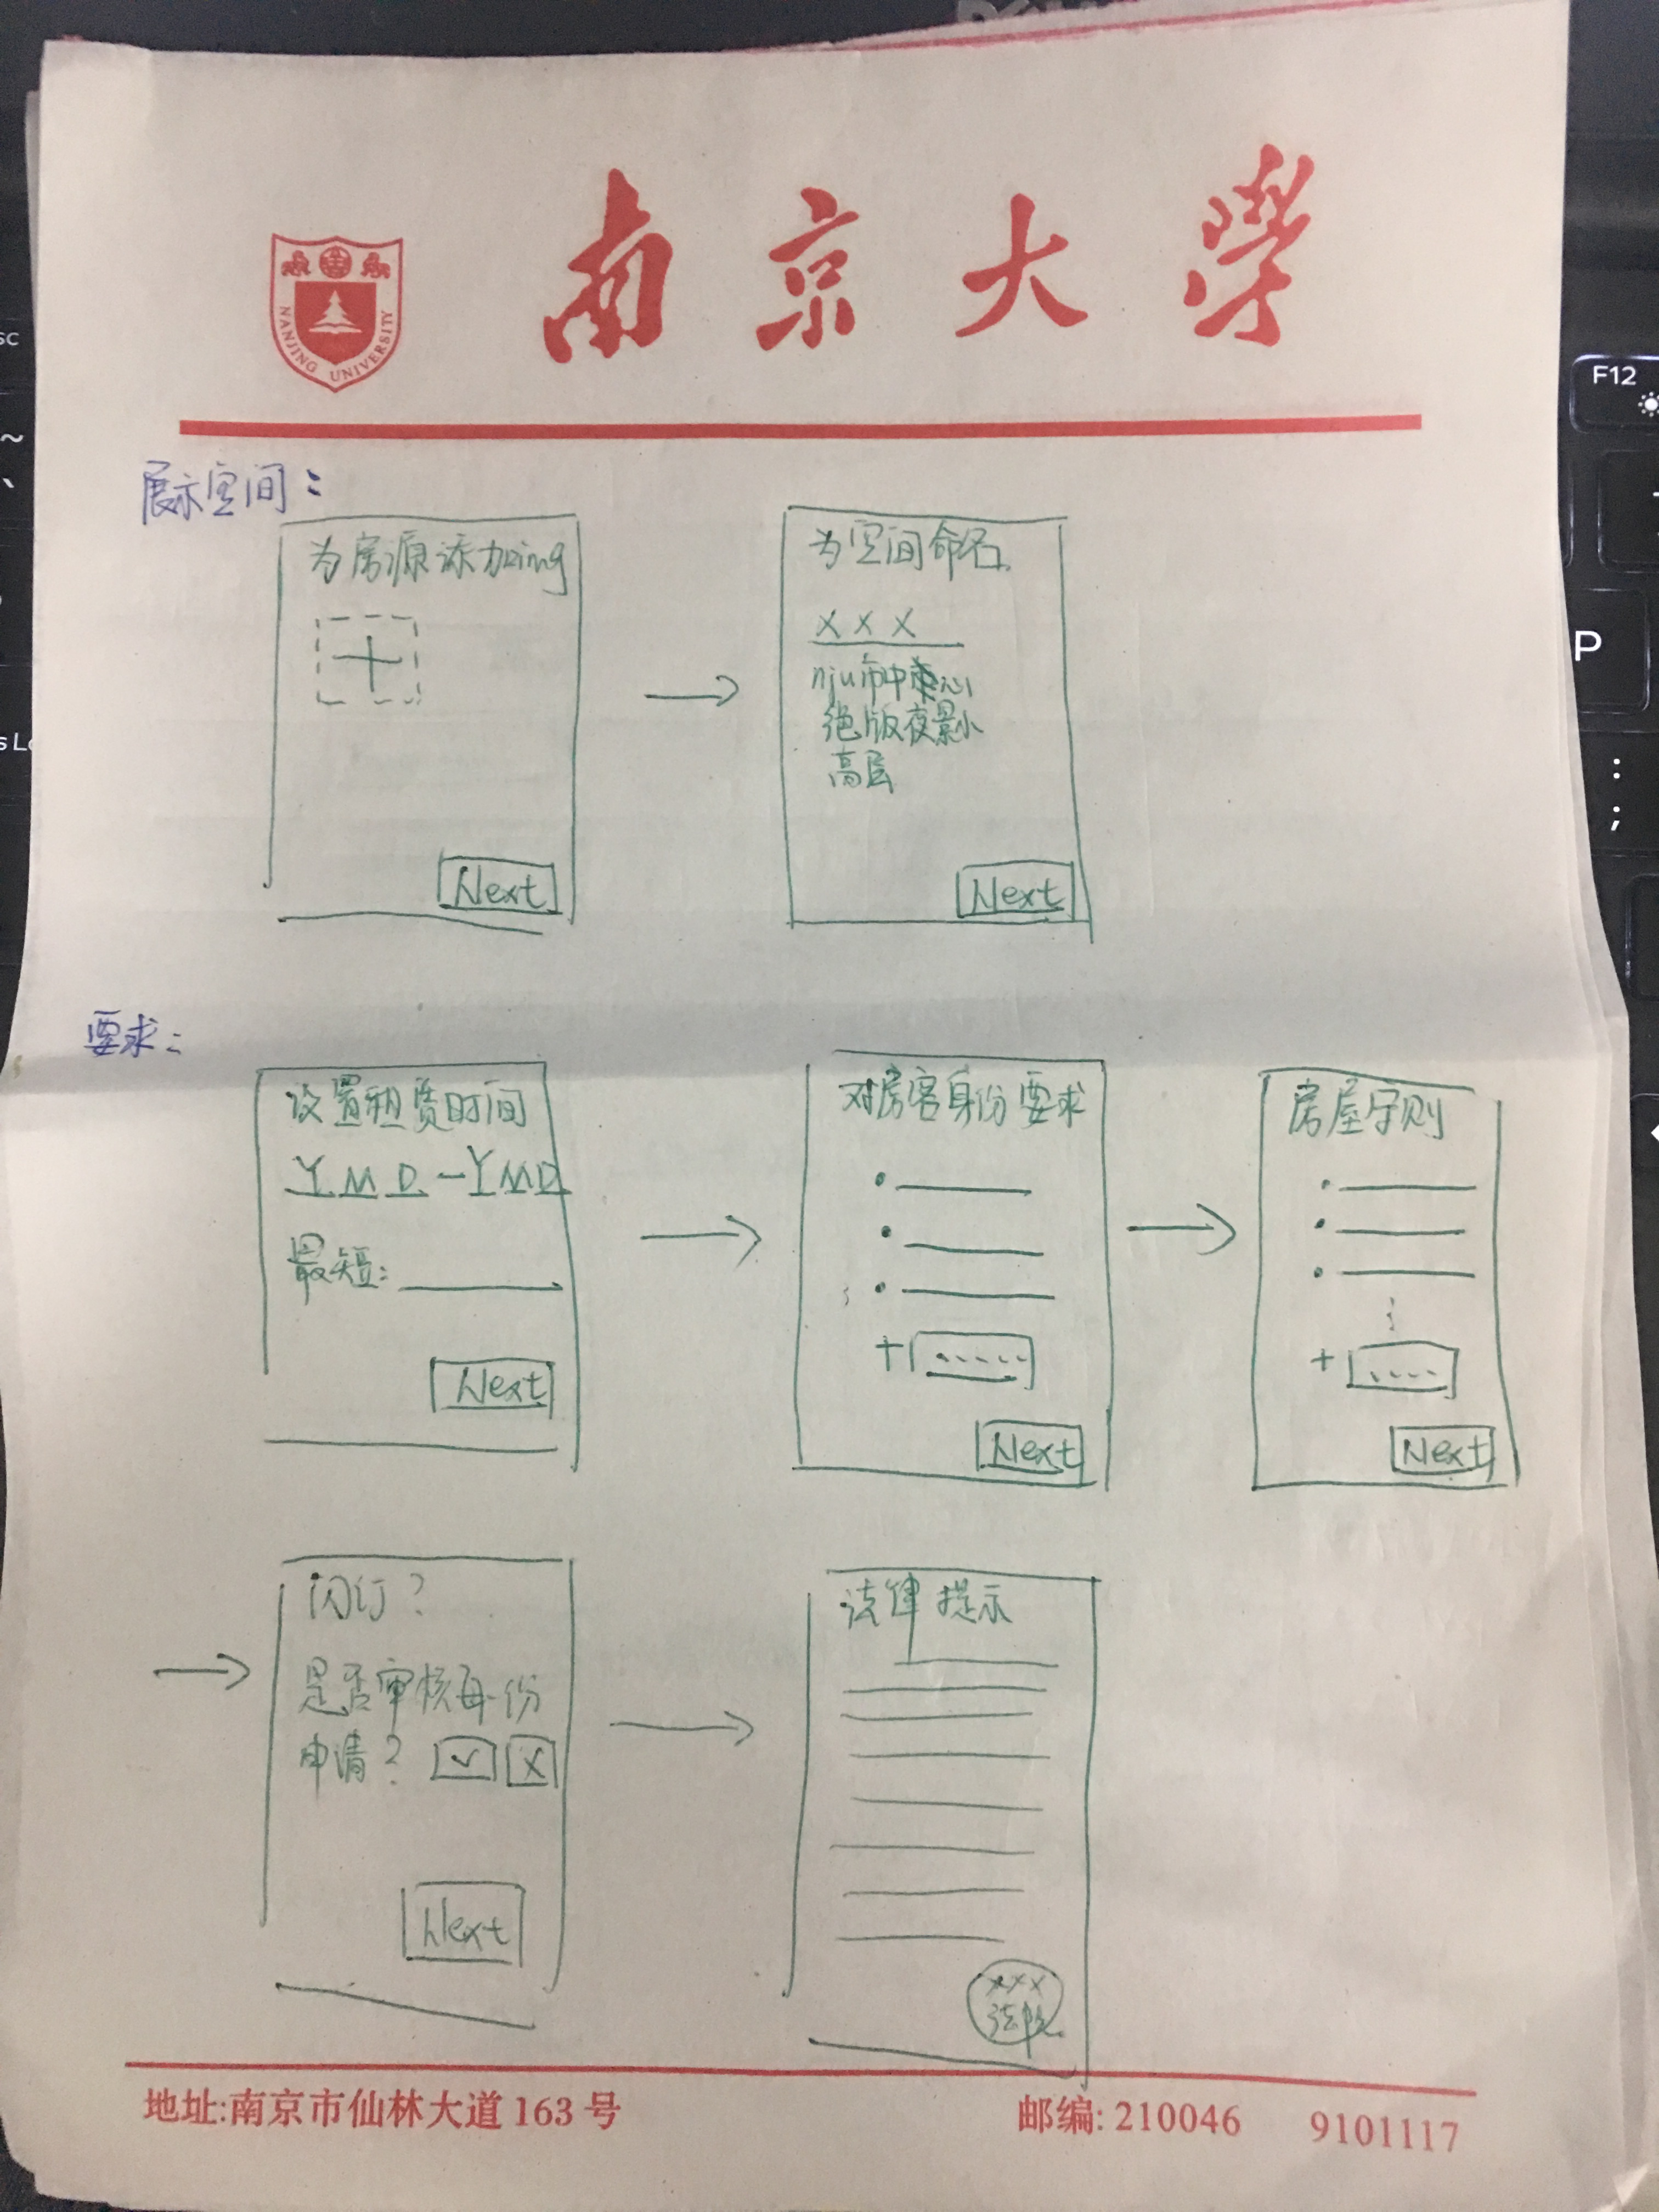 南京大學
NANJING UNIVERSITY
展示空间:
为房源添加img
Next
为空间命名
x x x
nju市中心
绝版夜景小
高层
Next
要求:
设置租赁时间
Y M D - Y M D
最短:
Next
对房客身份要求
+
Next
房屋守则
+
Next
闪订?
是否审核每份
申请? ✓ X
Next
法律提示
xxx
法院
地址:南京市仙林大道 163 号
邮编: 210046 9101117
F12
P
:
;
~